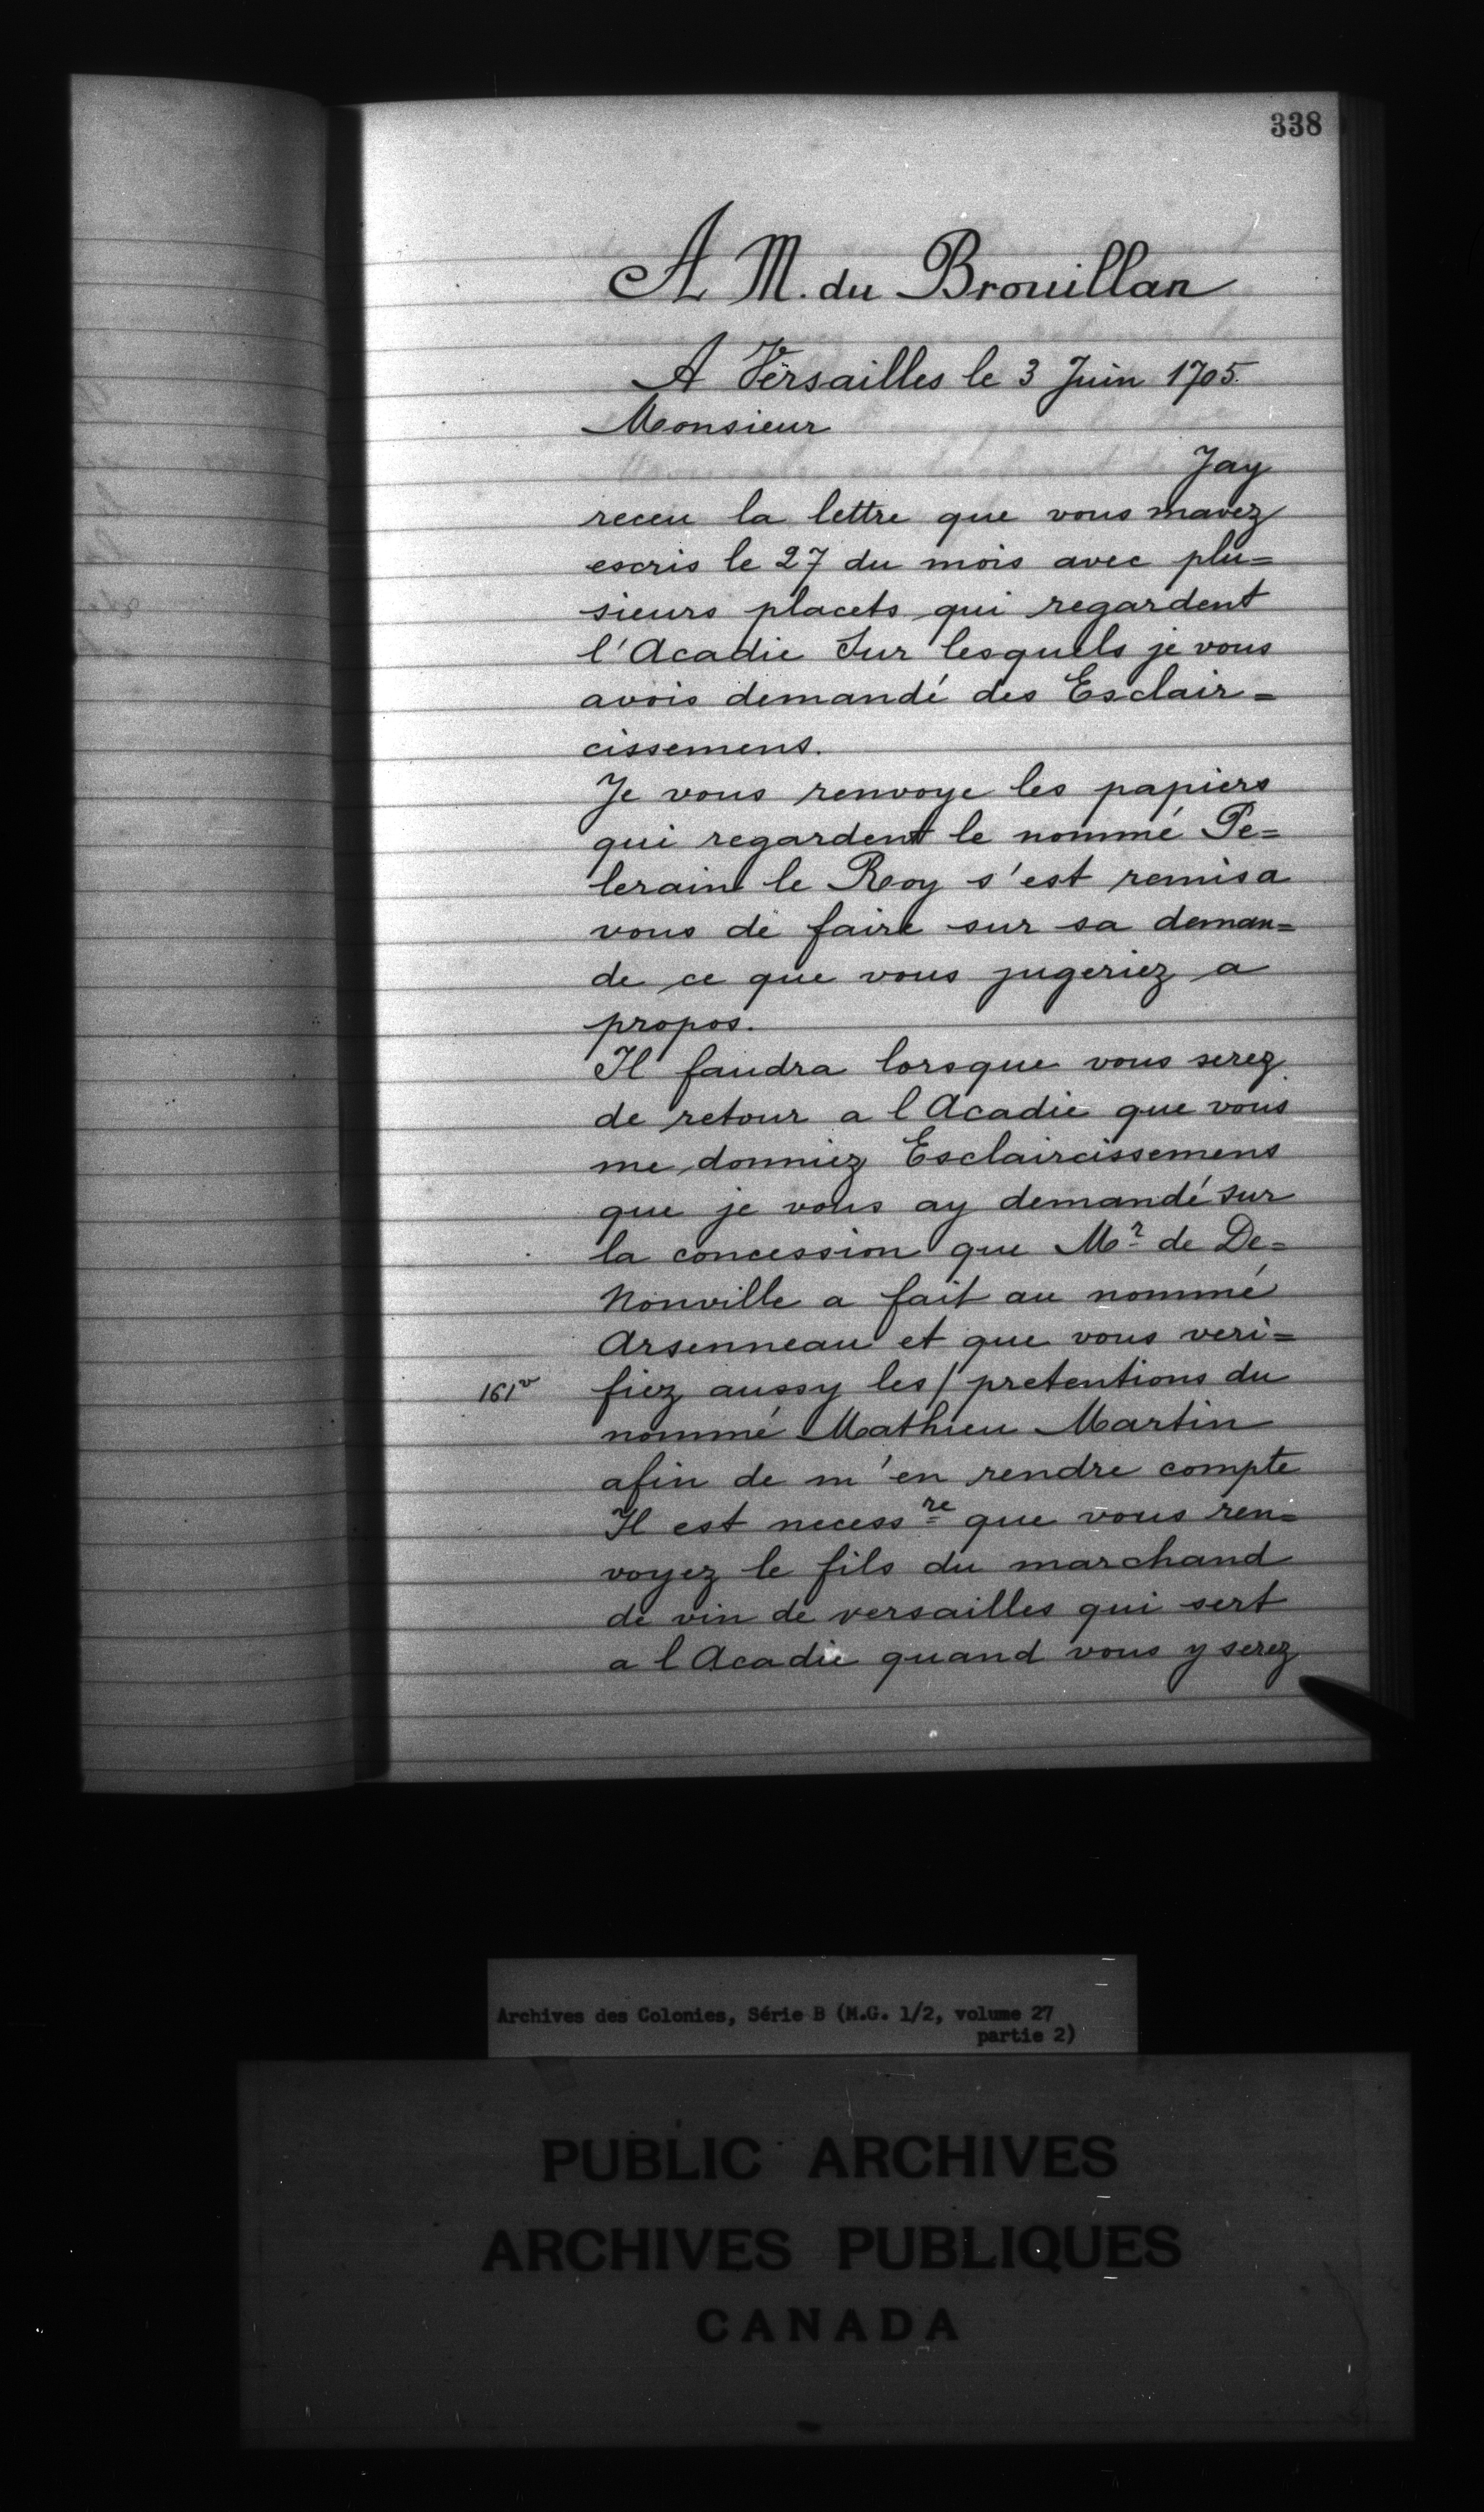 338
A M. du Brouillan
A Versailles le 3 Juin 1705.
Monsieur
Jay
receu la lettre que vous mavez
escris le 27 du mois avec plu=
sieurs placets qui regardent
l'Acadie Sur lesquels je vous
avois demandé des Esclair=
cissemens.
Je vous renvoye les papiers
qui regardent le nommé Pe=
lerain le Roy s'est remis a
vous de faire sur sa deman=
de ce que vous jugeriez a
propos.
Il faudra lorsque vous serez
de retour a l Acadie que vous
me donniez Esclaircissemens
que je vous ay demandé sur
la concession que Mr de De=
Nonville a fait au nommé
Arsenneau et que vous veri=
161v fiez aussy les / pretentions du
nommé Mathieu Martin
afin de m'en rendre compte
Il est necessre que vous ren=
voyez le fils du marchand
de vin de versailles qui sert
a l Acadie quand vous y serez
Archives des Colonies, Série B (M.G. 1/2, volume 27
partie 2)
PUBLIC ARCHIVES
ARCHIVES PUBLIQUES
CANADA